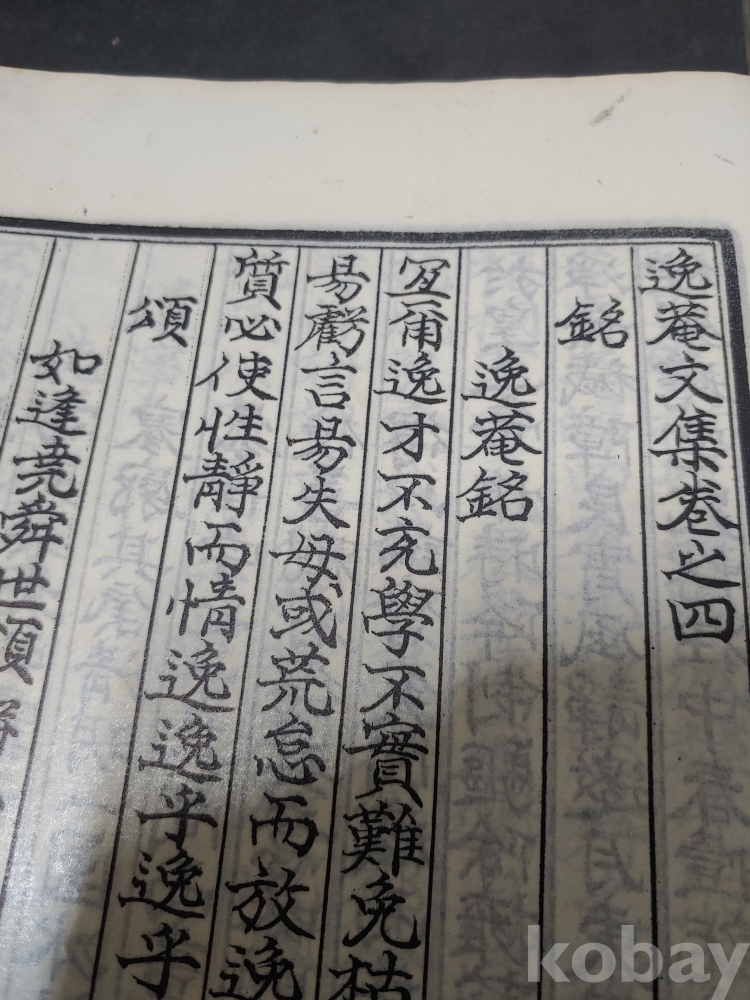 逸菴文集卷之四
銘
逸菴銘
爾逸才不充學不實難免枯
易虧言易失毋或荒怠而放逸
質必使性靜而情逸逸乎逸乎
頌
如逢堯舜世頌
kobay